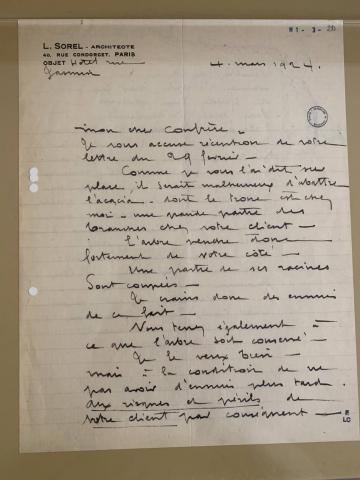 H1-3-20
L. SOREL - ARCHITECTE
40, RUE CONDORCET, PARIS
OBJET Hotel rue
Jasmin
4. mars 1924.
mon cher Confrère.
Je vous accuse réception de votre
lettre du 29 février -
Comme je vous l'ai dit sur
place, il serait malheureux d'abattre
l'acacia - dont le tronc est chez
moi - une grande partie des
branches chez votre client -
L'arbre penche donc
fortement de votre côté -
Une partie de ses racines
Sont coupées -
Je crains donc des ennuis
de ce fait -
Vous tenez également à
ce que l'arbre soit conservé -
Je le veux bien -
mais à la condition de ne
pas avoir d'ennuis plus tard.
aux risques et périls de
votre client par conséquent -
LC